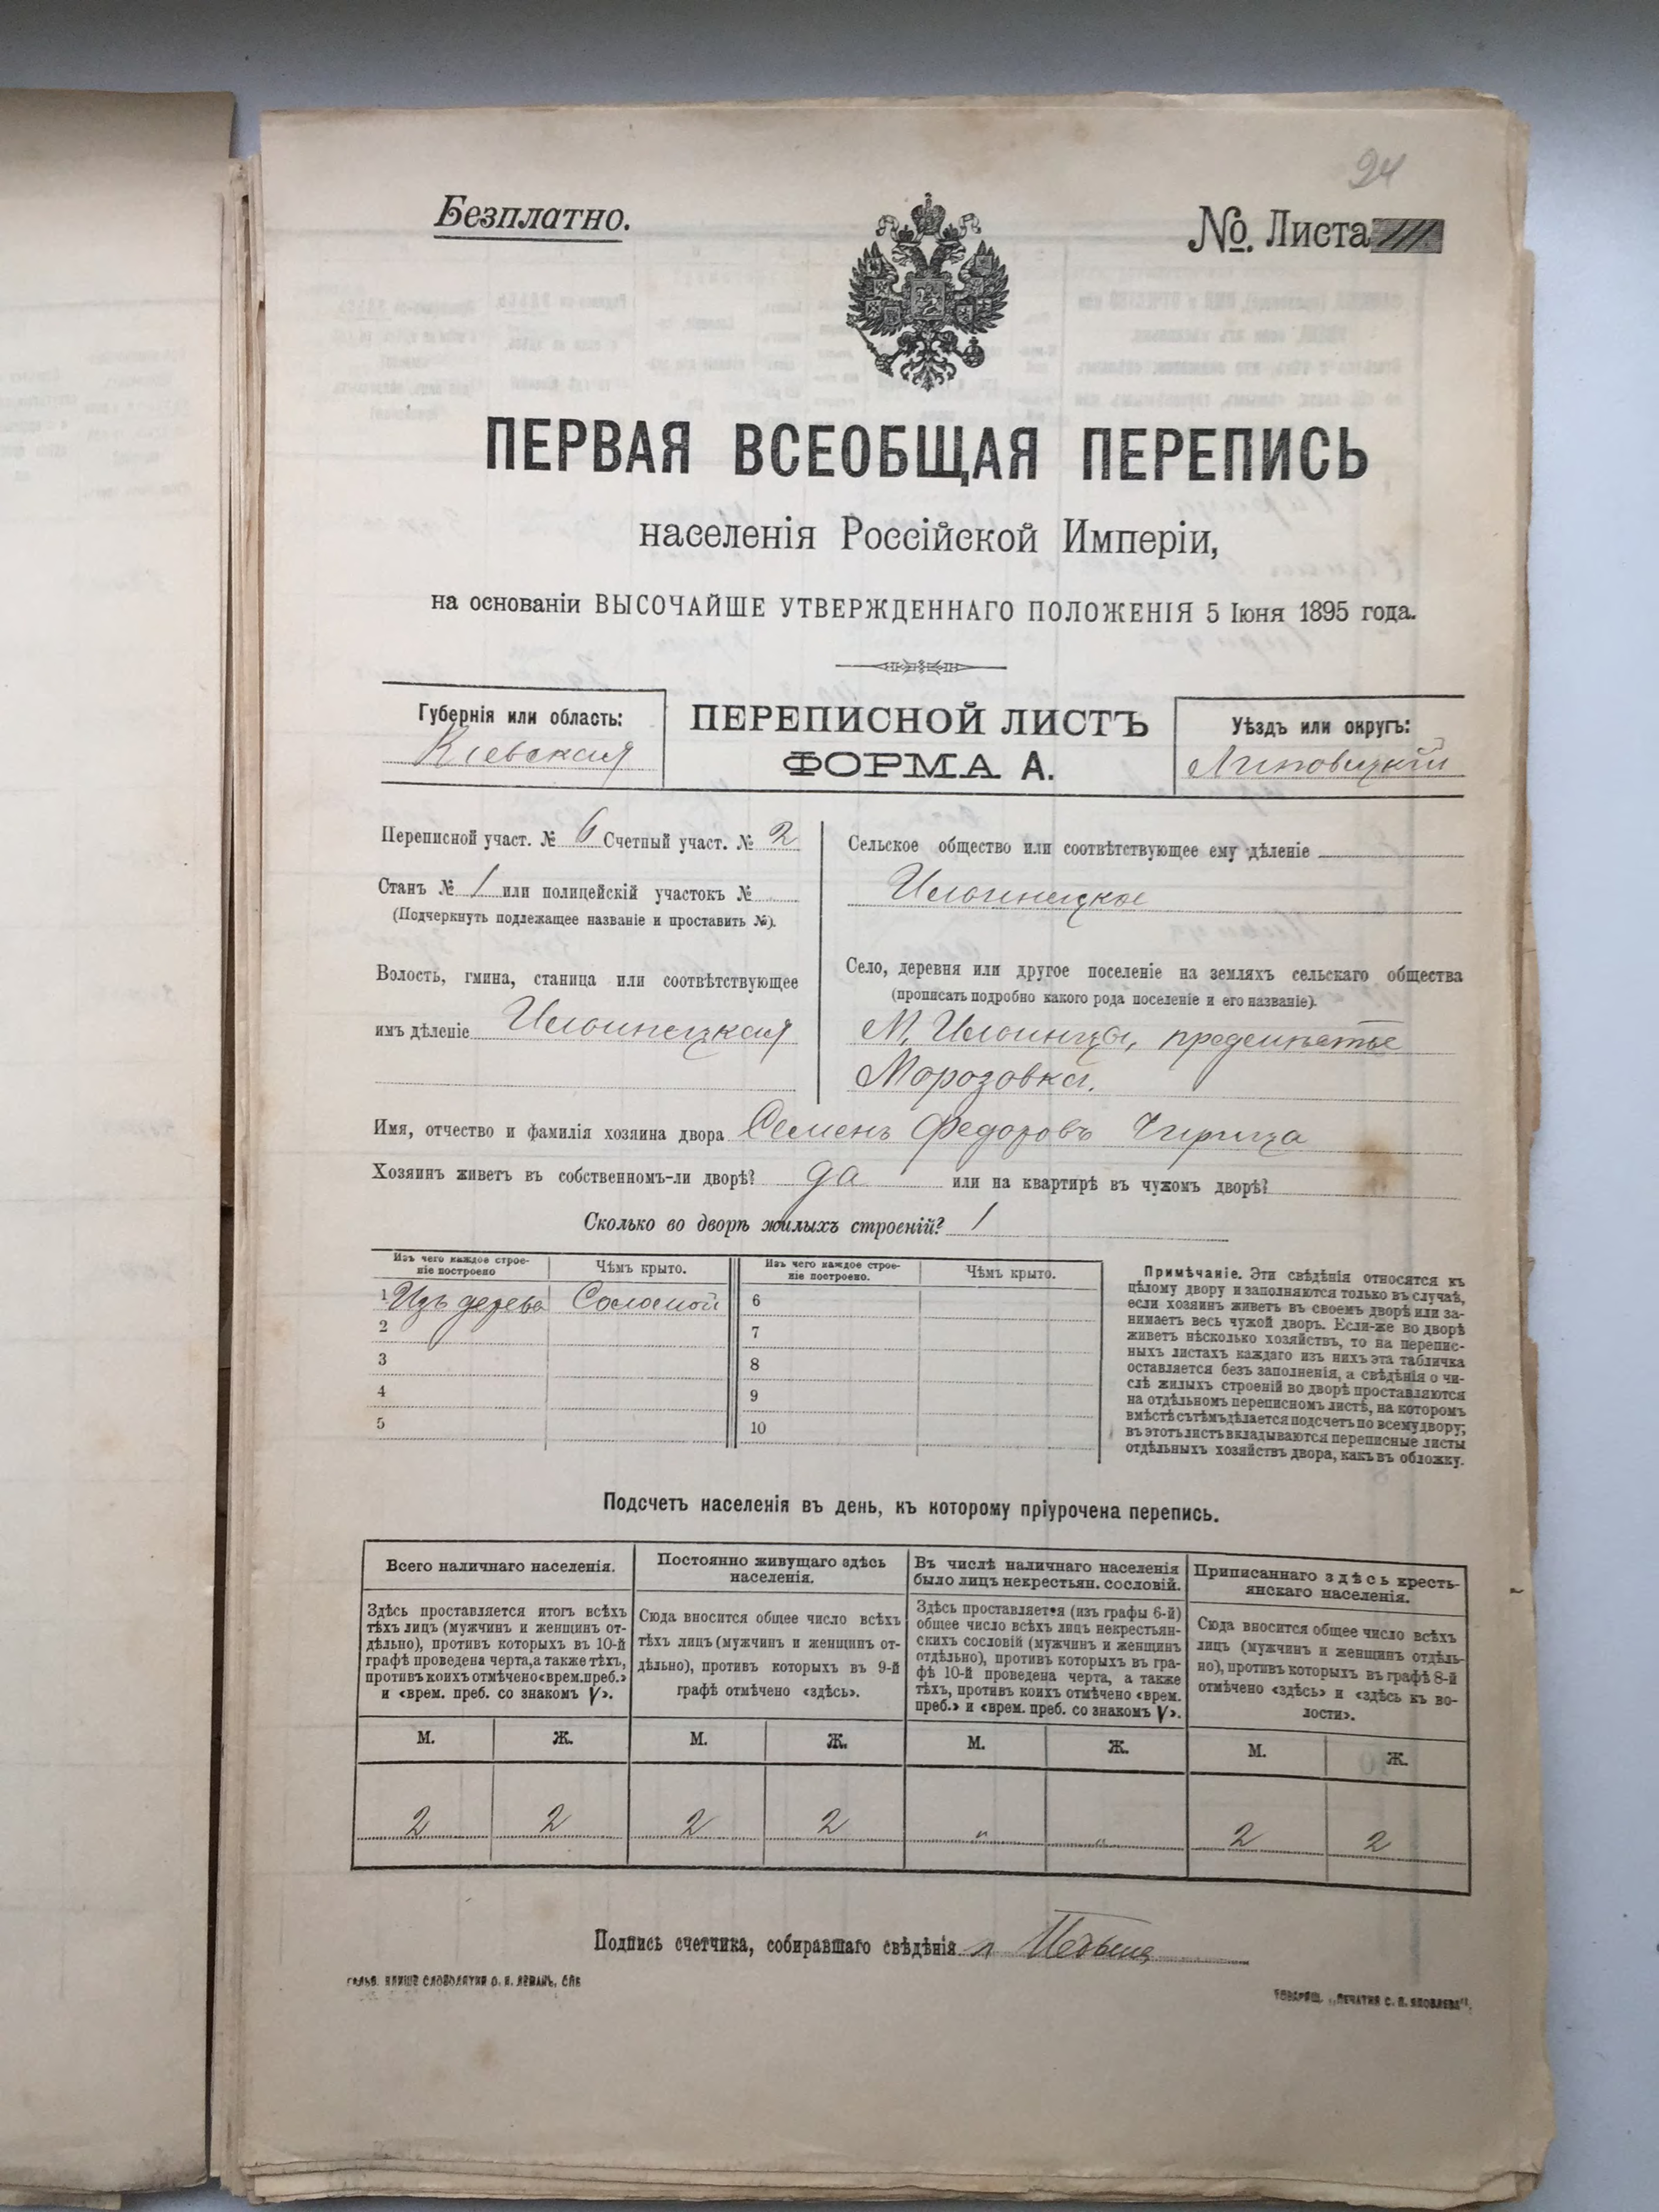 24
Безплатно.
№. Листа
ПЕРВАЯ ВСЕОБЩАЯ ПЕРЕПИСЬ
населенія Россійской Имперіи,
на основаніи ВЫСОЧАЙШЕ УТВЕРЖДЕННАГО ПОЛОЖЕНІЯ 5 Іюня 1895 года.
Губернія или область:
Кіевская
ПЕРЕПИСНОЙ ЛИСТЪ
ФОРМА А.
Уѣздъ или округъ:
Липовецкій
Переписной участ. № 6 Счетный участ. № 2
Станъ № 1 или полицейскій участокъ №
(Подчеркнуть подлежащее названіе и проставить №).
Волость, гмина, станица или соотвѣтствующее
имъ дѣленіе Ильинецкая
Сельское общество или соотвѣтствующее ему дѣленіе
Ильинецкое
Село, деревня или другое поселеніе на земляхъ сельскаго общества
(прописать подробно какого рода поселеніе и его названіе).
М. Ильинцы, предмѣстье
Морозовка.
Имя, отчество и фамилія хозяина двора Семенъ Федоровъ Чирица
Хозяинъ живетъ въ собственномъ-ли дворѣ? да или на квартирѣ въ чужомъ дворѣ?
Сколько во дворѣ жилыхъ строеній? 1
Изъ чего каждое строе-
ніе построено
Чѣмъ крыто.
Изъ чего каждое строе-
ніе построено.
Чѣмъ крыто.
1 Изъ дерева Соломой
2
3
4
5
6
7
8
9
10
Примѣчаніе. Эти свѣдѣнія относятся къ
цѣлому двору и заполняются только въ случаѣ,
если хозяинъ живетъ въ своемъ дворѣ или за-
нимаетъ весь чужой дворъ. Если-же во дворѣ
живетъ нѣсколько хозяйствъ, то на перепис-
ныхъ листахъ каждаго изъ нихъ эта табличка
оставляется безъ заполненія, а свѣдѣнія о чи-
слѣ жилыхъ строеній во дворѣ проставляются
на отдѣльномъ переписномъ листѣ, на которомъ
вмѣстѣ съ тѣмъ дѣлается подсчетъ по всему двору;
въ этотъ листъ вкладываются переписные листы
отдѣльныхъ хозяйствъ двора, какъ въ обложку.
Подсчетъ населенія въ день, къ которому пріурочена перепись.
Всего наличнаго населенія.
Здѣсь проставляется итогъ всѣхъ
тѣхъ лицъ (мужчинъ и женщинъ от-
дѣльно), противъ которыхъ въ 10-й
графѣ проведена черта, а также тѣхъ,
противъ коихъ отмѣчено «врем. преб.»
и «врем. преб. со знакомъ V».
Постоянно живущаго здѣсь
населенія.
Сюда вносится общее число всѣхъ
тѣхъ лицъ (мужчинъ и женщинъ от-
дѣльно), противъ которыхъ въ 9-й
графѣ отмѣчено «здѣсь».
Въ числѣ наличнаго населенія
было лицъ некрестьян. сословій.
Здѣсь проставляется (изъ графы 6-й)
общее число всѣхъ лицъ некрестьян-
скихъ сословій (мужчинъ и женщинъ
отдѣльно), противъ которыхъ въ гра-
фѣ 10-й проведена черта, а также
тѣхъ, противъ коихъ отмѣчено «врем.
преб.» и «врем. преб. со знакомъ V».
Приписаннаго здѣсь кресть-
янскаго населенія.
Сюда вносится общее число всѣхъ
лицъ (мужчинъ и женщинъ отдѣль-
но), противъ которыхъ въ графѣ 8-й
отмѣчено «здѣсь» и «здѣсь къ во-
лости».
М. Ж. М. Ж. М. Ж. М. Ж.
2 2 2 2 " " 2 2
Подпись счетчика, собиравшаго свѣдѣнія
ГАЛЬВ. КЛИШЕ СЛОВОЛИТНИ О. И. ЛЕМАНЪ, СПБ
ТОВАРИЩ. „ПЕЧАТНЯ С. П. ЯКОВЛЕВА".